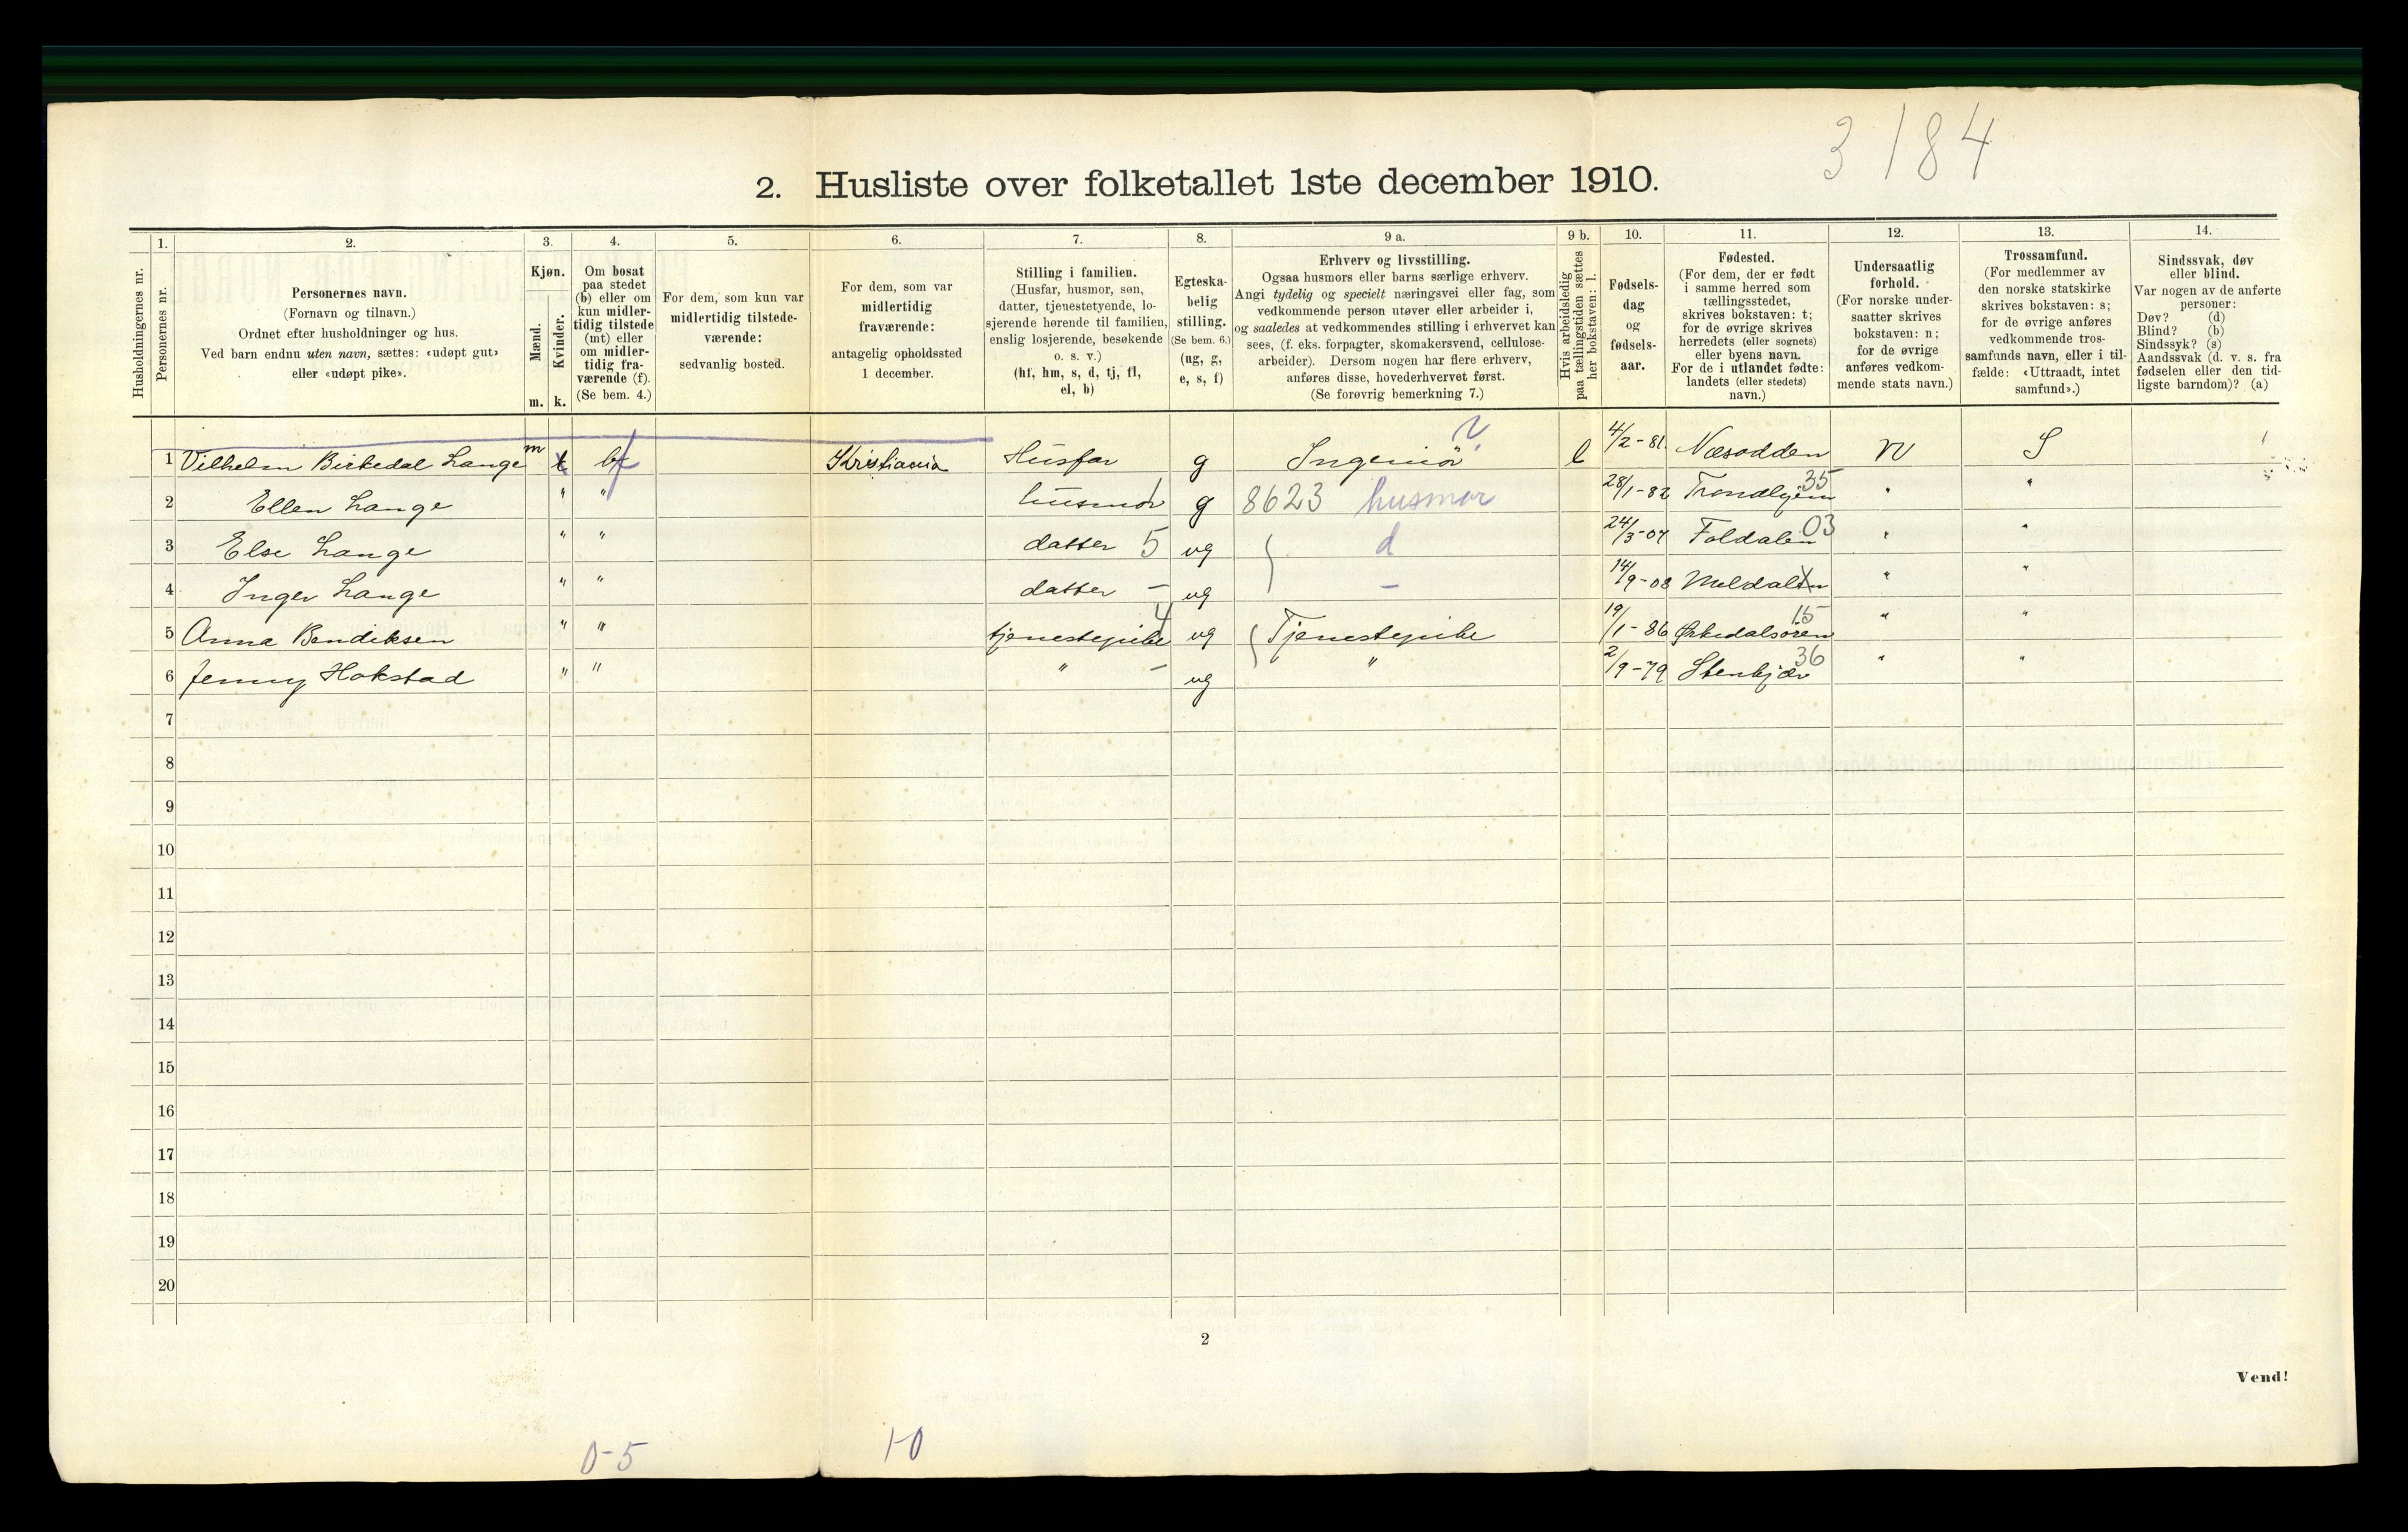 3184
2. Husliste over folketallet 1ste december 1910.
Husholdningernes nr.
1.
Personernes nr.
2.
Personernes navn.
(Fornavn og tilnavn.)
Ordnet efter husholdninger og hus.
Ved barn endnu uten navn, sættes: «udøpt gut»
eller «udøpt pike».
3.
Kjøn.
Mænd.
Kvinder.
m. k.
4.
Om bosat
paa stedet
(b) eller om
kun midler-
tidig tilstede
(mt) eller
om midler-
tidig fra-
værende (f).
(Se bem. 4.)
5.
For dem, som kun var
midlertidig tilstede-
værende:
sedvanlig bosted.
6.
For dem, som var
midlertidig
fraværende:
antagelig opholdssted
1 december.
7.
Stilling i familien.
(Husfar, husmor, søn,
datter, tjenestetyende, lo-
sjerende hørende til familien,
enslig losjerende, besøkende
o. s. v.)
(hf, hm, s, d, tj, fl,
el, b)
8.
Egteska-
belig
stilling.
(Se bem. 6.)
(ug, g,
e, s, f)
9 a.
Erhverv og livsstilling.
Ogsaa husmors eller barns særlige erhverv.
Angi tydelig og specielt næringsvei eller fag, som
vedkommende person utøver eller arbeider i,
og saaledes at vedkommendes stilling i erhvervet kan
sees, (f. eks. forpagter, skomakersvend, cellulose-
arbeider). Dersom nogen har flere erhverv,
anføres disse, hovederhvervet først.
(Se forøvrig bemerkning 7.)
9 b.
Hvis arbeidsledig
paa tællingstiden sættes
her bokstaven: l.
10.
Fødsels-
dag
og
fødsels-
aar.
11.
Fødested.
(For dem, der er født
i samme herred som
tællingsstedet,
skrives bokstaven: t;
for de øvrige skrives
herredets (eller sognets)
eller byens navn.
For de i utlandet fødte:
landets (eller stedets)
navn.)
12.
Undersaatlig
forhold.
(For norske under-
saatter skrives
bokstaven: n;
for de øvrige
anføres vedkom-
mende stats navn.)
13.
Trossamfund.
(For medlemmer av
den norske statskirke
skrives bokstaven: s;
for de øvrige anføres
vedkommende tros-
samfunds navn, eller i til-
fælde: «Uttraadt, intet
samfund».)
14.
Sindssvak, døv
eller blind.
Var nogen av de anførte
personer:
Døv? (d)
Blind? (b)
Sindssyk? (s)
Aandssvak (d. v. s. fra
fødselen eller den tid-
ligste barndom)? (a)
1 Vilhelm Birkedal Lange m k bf Kristiania Husfar g Ingeniør l 4/2-81. Næsodden N S
2 Ellen Lange " " husmor 1 g 8623 husmor 28/1-82 Trondhjem 35 " "
3 Else Lange " " datter 5 ug d 24/3-07 Foldalen 03 " "
4 Inger Lange " " datter - ug - 14/9-08 Meldalen " "
5 Anna Bendiksen " " tjenestepike 4 ug Tjenestepike 19/1-86 Ørkedalsøren 15 " "
6 Jenny Hokstad " " " - ug " 2/9-79 Stenkjær 36 " "
7
8
9
10
11
12
13
14
15
16
17
18
19
20
2
Vend!
0-5 1-0